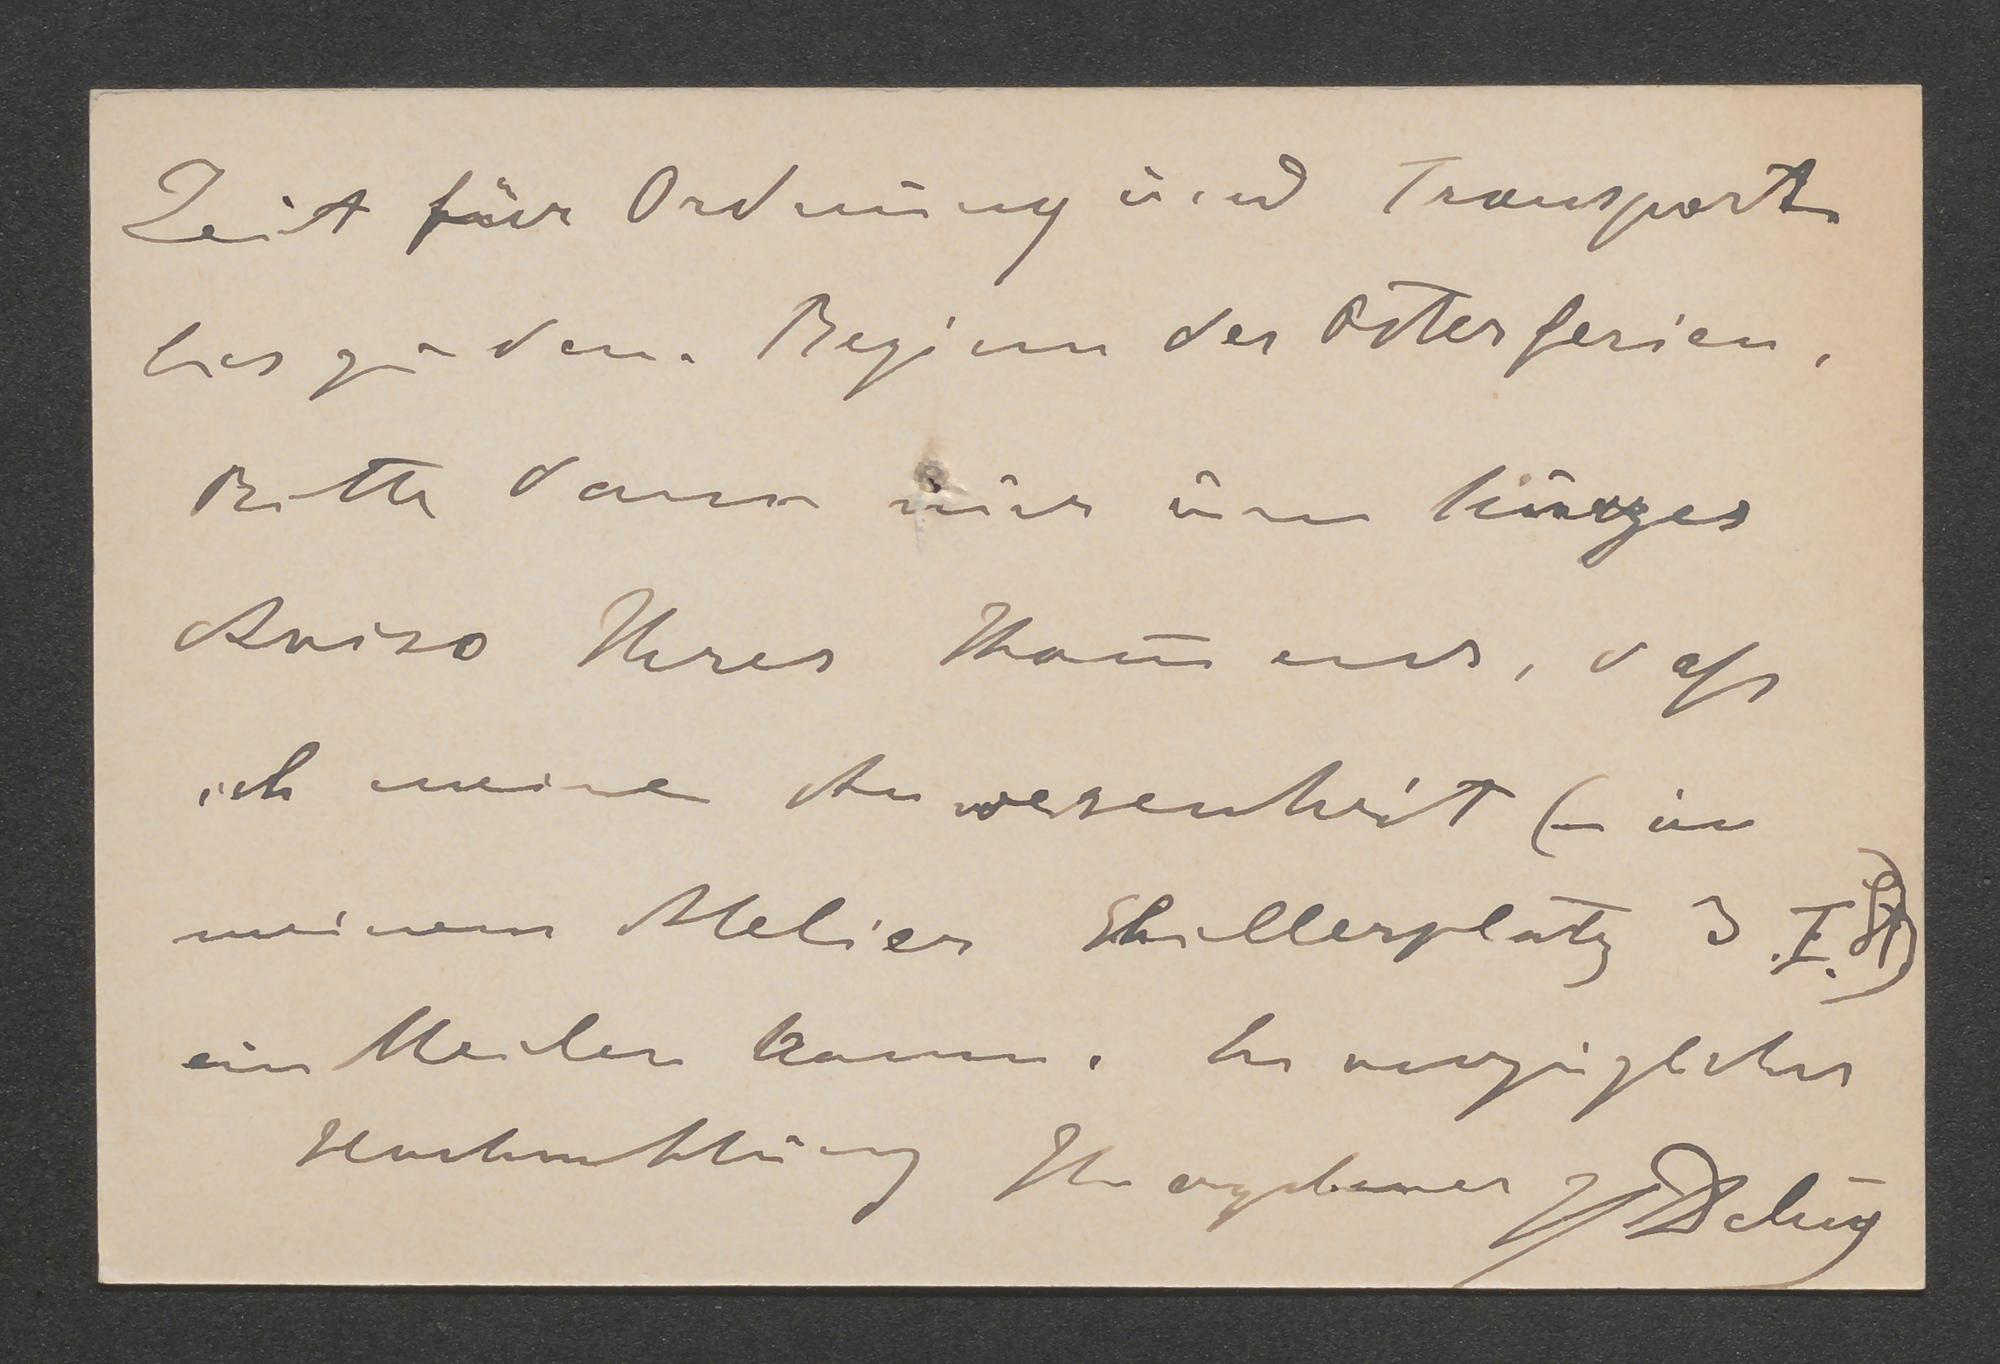 Zeit für Ordnung und Transport
bis zu den. Beginn der Osterferien.
Bitte dann nur um kurzes
Aviso Ihres Kom̅ens, daß
ich meine Anwesenheit (– in
meinem Atelier Schillerplatz 3 I.
einteilen kann. In vorzüglicher
Hochachtung Ihr ergebener